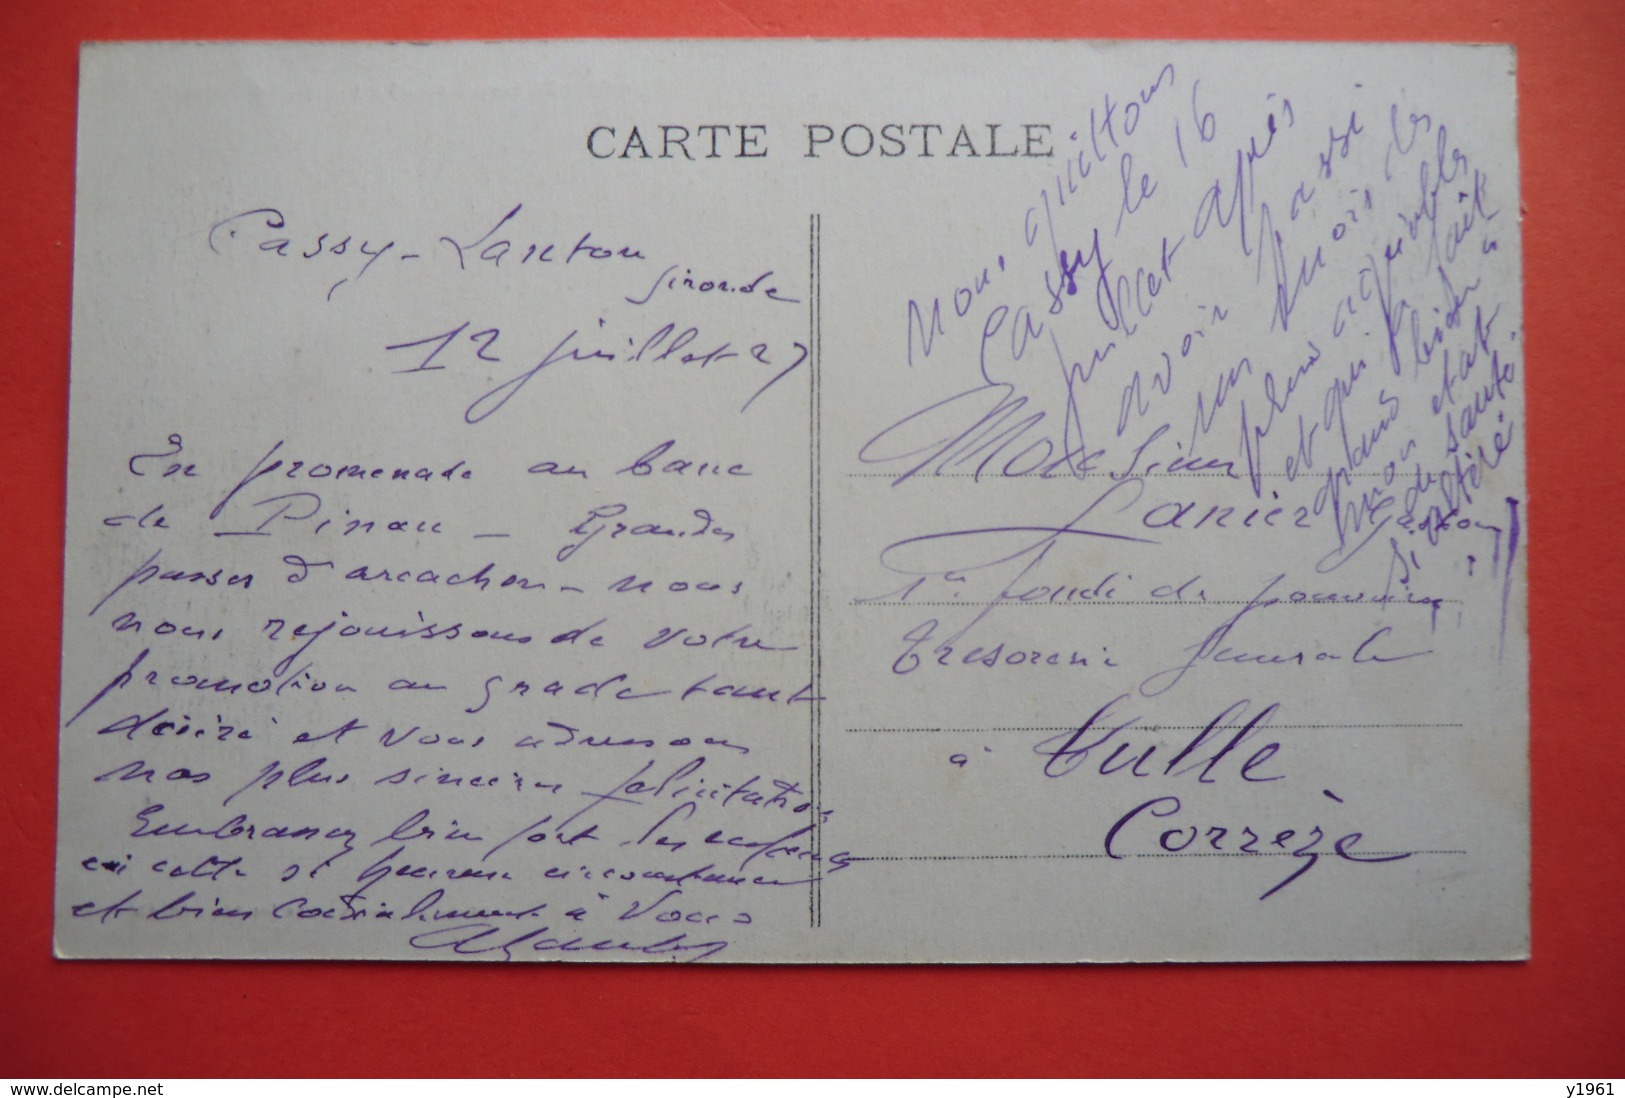 CARTE POSTALE
Cassy-Lanton
Gironde
12 juillet 27
En promenade au banc
de Pineau - Grandes
passes d'arcachon - nous
nous rejouissons de votre
promotion au grade tant
désiré et vous adressons
nos plus sincères felicitations
Embrassez bien fort les
en cette si heureuse circonstance
et bien cordialement à vous
Nous quittons
Cassy le 16
juillet après
avoir passé
un mois des
plus agréables
et qui fait
grand bien à
mon etat
de santé
si
Monsieur
Lanier Gaston
1er fondé de pouvoirs
Tresorerie Generale
à Tulle
Corrèze
www.delcampe.net
y1961